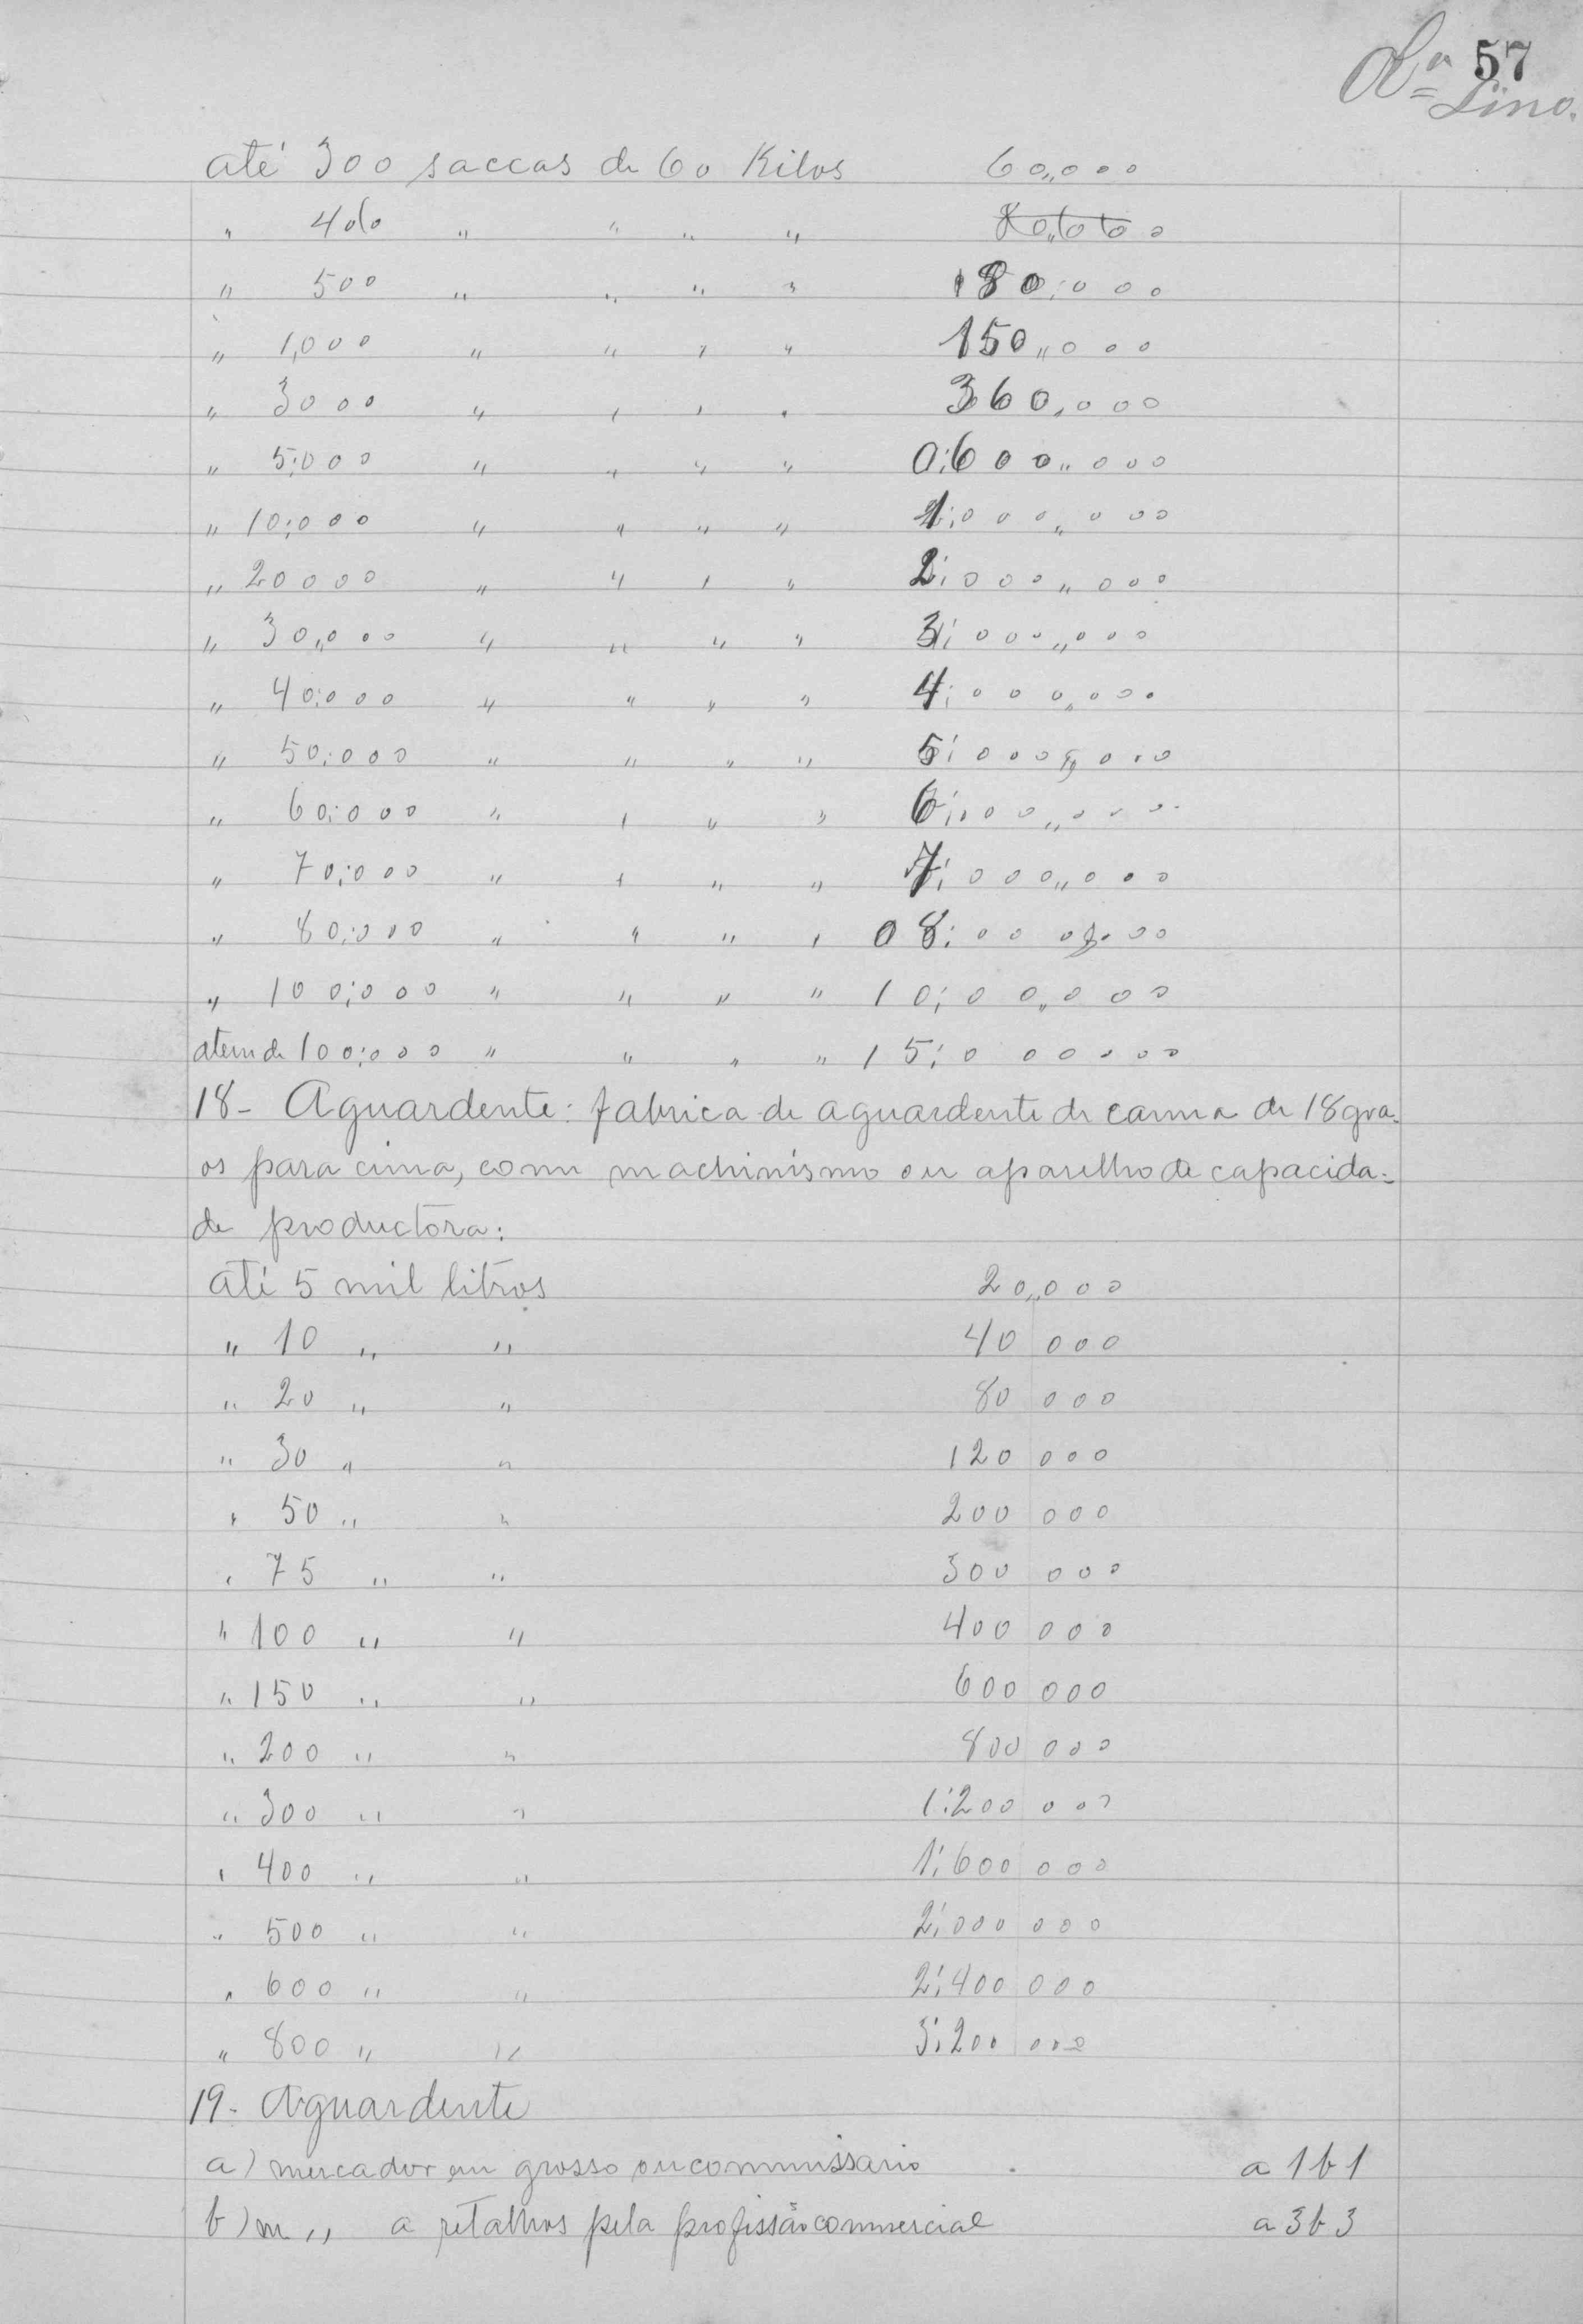 57
Lino.
até 300 saccas de 60 Kilos 60,,000
" 400 " " " "
" 500 " " " " 80:000
" 1,000 " " " " 150,,000
" 3000 " " " " 360,000
" 5:000 " " " " 0:600,,000
" 10:000 " " " " 1:000,,000
" 20000 " " " " 2:000,,000
" 30,,000 " " " " 3:000,,000
" 40:000 " " " " 4:000,000
" 50:000 " " " " 5:000,,000
" 60:000 " " " " 6:000,,000
" 70:000 " " " " 7:000,,000
" 80:000 " " " " 08:000,000
" 100:000 " " " " 10:00,,000
alem de 100:000 " " " " 15:000000
18- Aguardente: fabrica de aguardente de canna de 18 gra-
os para cima, com machinismo ou aparelho de capacida-
de productora:
até 5 mil litros 20,,000
" 10 " " 40 000
" 20 " " 80 000
" 30 " " 120 000
" 50 " " 200 000
" 75 " " 300 000
" 100 " " 400 000
" 150 " " 600 000
" 200 " " 800 000
" 300 " " 1:200 000
" 400 " " 1:600 000
" 500 " " 2:000 000
" 600 " " 2:400 000
" 800 " " 3:200 000
19- Aguardente
a) mercador em grosso ou commissario a 1 b 1
b) m " a retalhos pela profissão commercial a 3 b 3